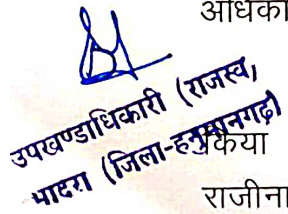 अधिका
उपखण्डाधिकारी (राजस्व)
भादरा (जिला-हनुमानगढ़)
किया
राजीना